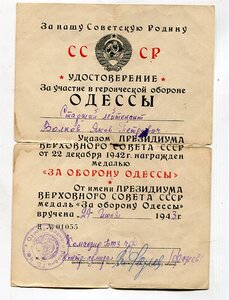 За нашу Советскую Родину
СССР
УДОСТОВЕРЕНИЕ
За участие в героической обороне
ОДЕССЫ
Старший лейтенант
Волков Яков Петрович
Указом ПРЕЗИДИУМА
ВЕРХОВНОГО СОВЕТА СССР
от 22 декабря 1942 г. награжден
медалью
«ЗА ОБОРОНУ ОДЕССЫ»
От имени ПРЕЗИДИУМА
ВЕРХОВНОГО СОВЕТА СССР
медаль «За оборону Одессы»
вручена 194 г.
№ 01055